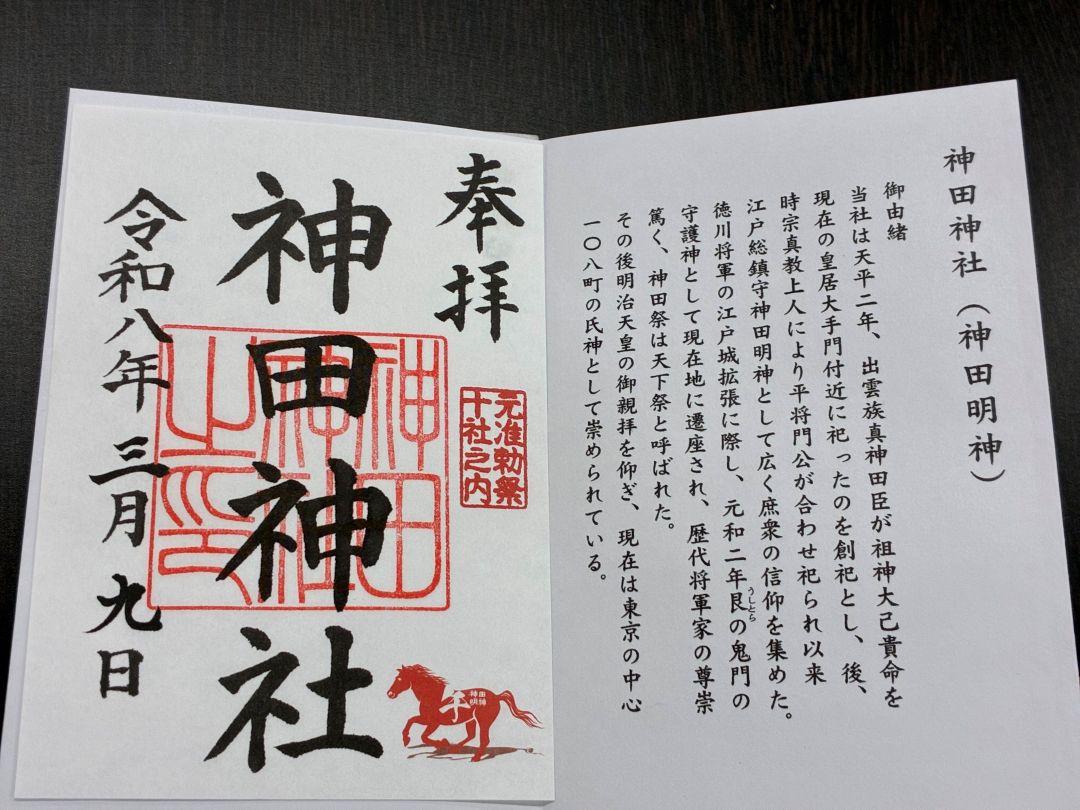 神田神社（神田明神）
御由緒
当社は天平二年、出雲族真神田臣が祖神大己貴命を
現在の皇居大手門付近に祀ったのを創祀とし、後、
時宗真教上人により平将門公が合わせ祀られ以来
江戸総鎮守神田明神として広く庶衆の信仰を集めた。
徳川将軍の江戸城拡張に際し、元和二年艮の鬼門の
うしとら
守護神として現在地に遷座され、歴代将軍家の尊崇
篤く、神田祭は天下祭と呼ばれた。
その後明治天皇の御親拝を仰ぎ、現在は東京の中心
一〇八町の氏神として崇められている。
奉拝
元准勅祭
十社之内
神田神社
神田
神社
之印
令和八年三月九日
神田
明神